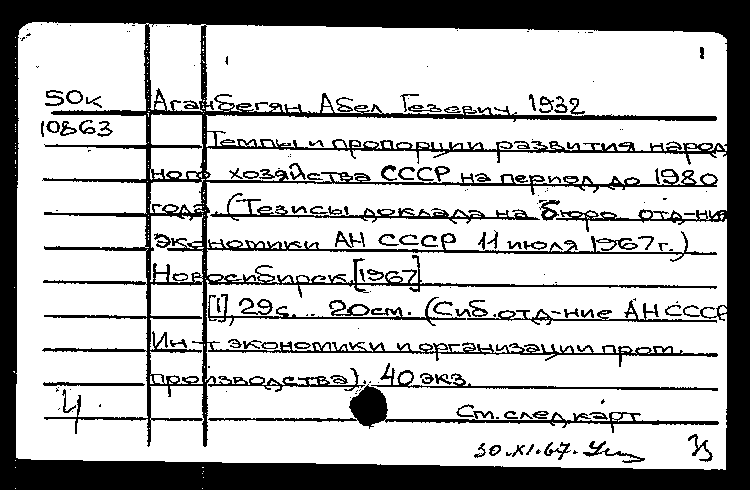 50к Аганбегян, Абел Гезевич, 1932
10863
Темпы и пропорции развития народ
ного хозяйства СССР на период до 1980
года. (Тезисы доклада на бюро отд-ния
экономики АН СССР 11 июля 1967г.)
Новосибирск, [1967]
[1], 29с. 20см. (Сиб. отд-ние АН СССР
Ин-т экономики и организации пром.
производства). 40 экз.
Ст. след. карт
30.XI.67.